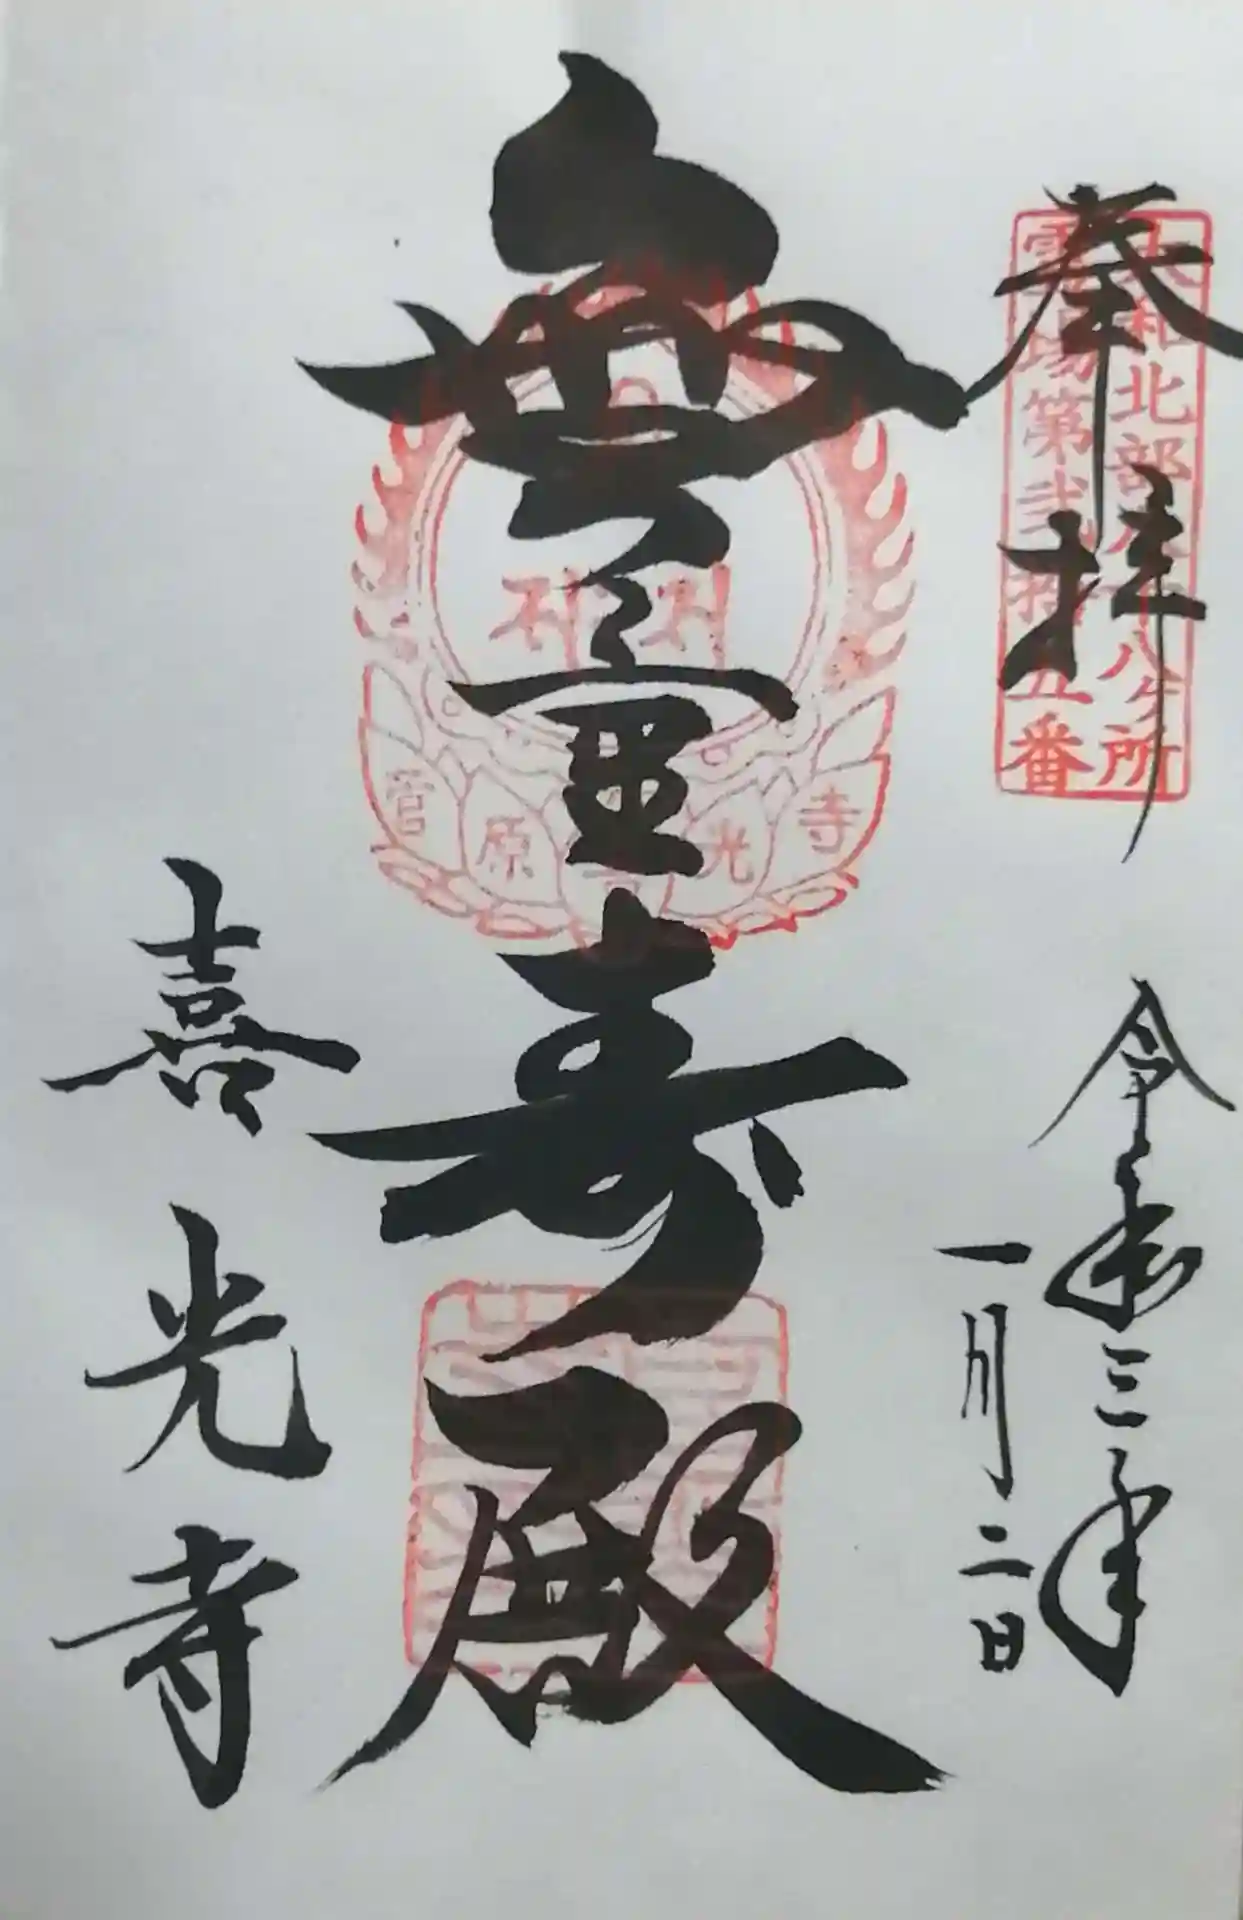 奉拝
大和北部八十八ヶ所
霊場第弐拾五番
令和三年
一月二日
無量寿殿
菅原喜光寺
喜光寺